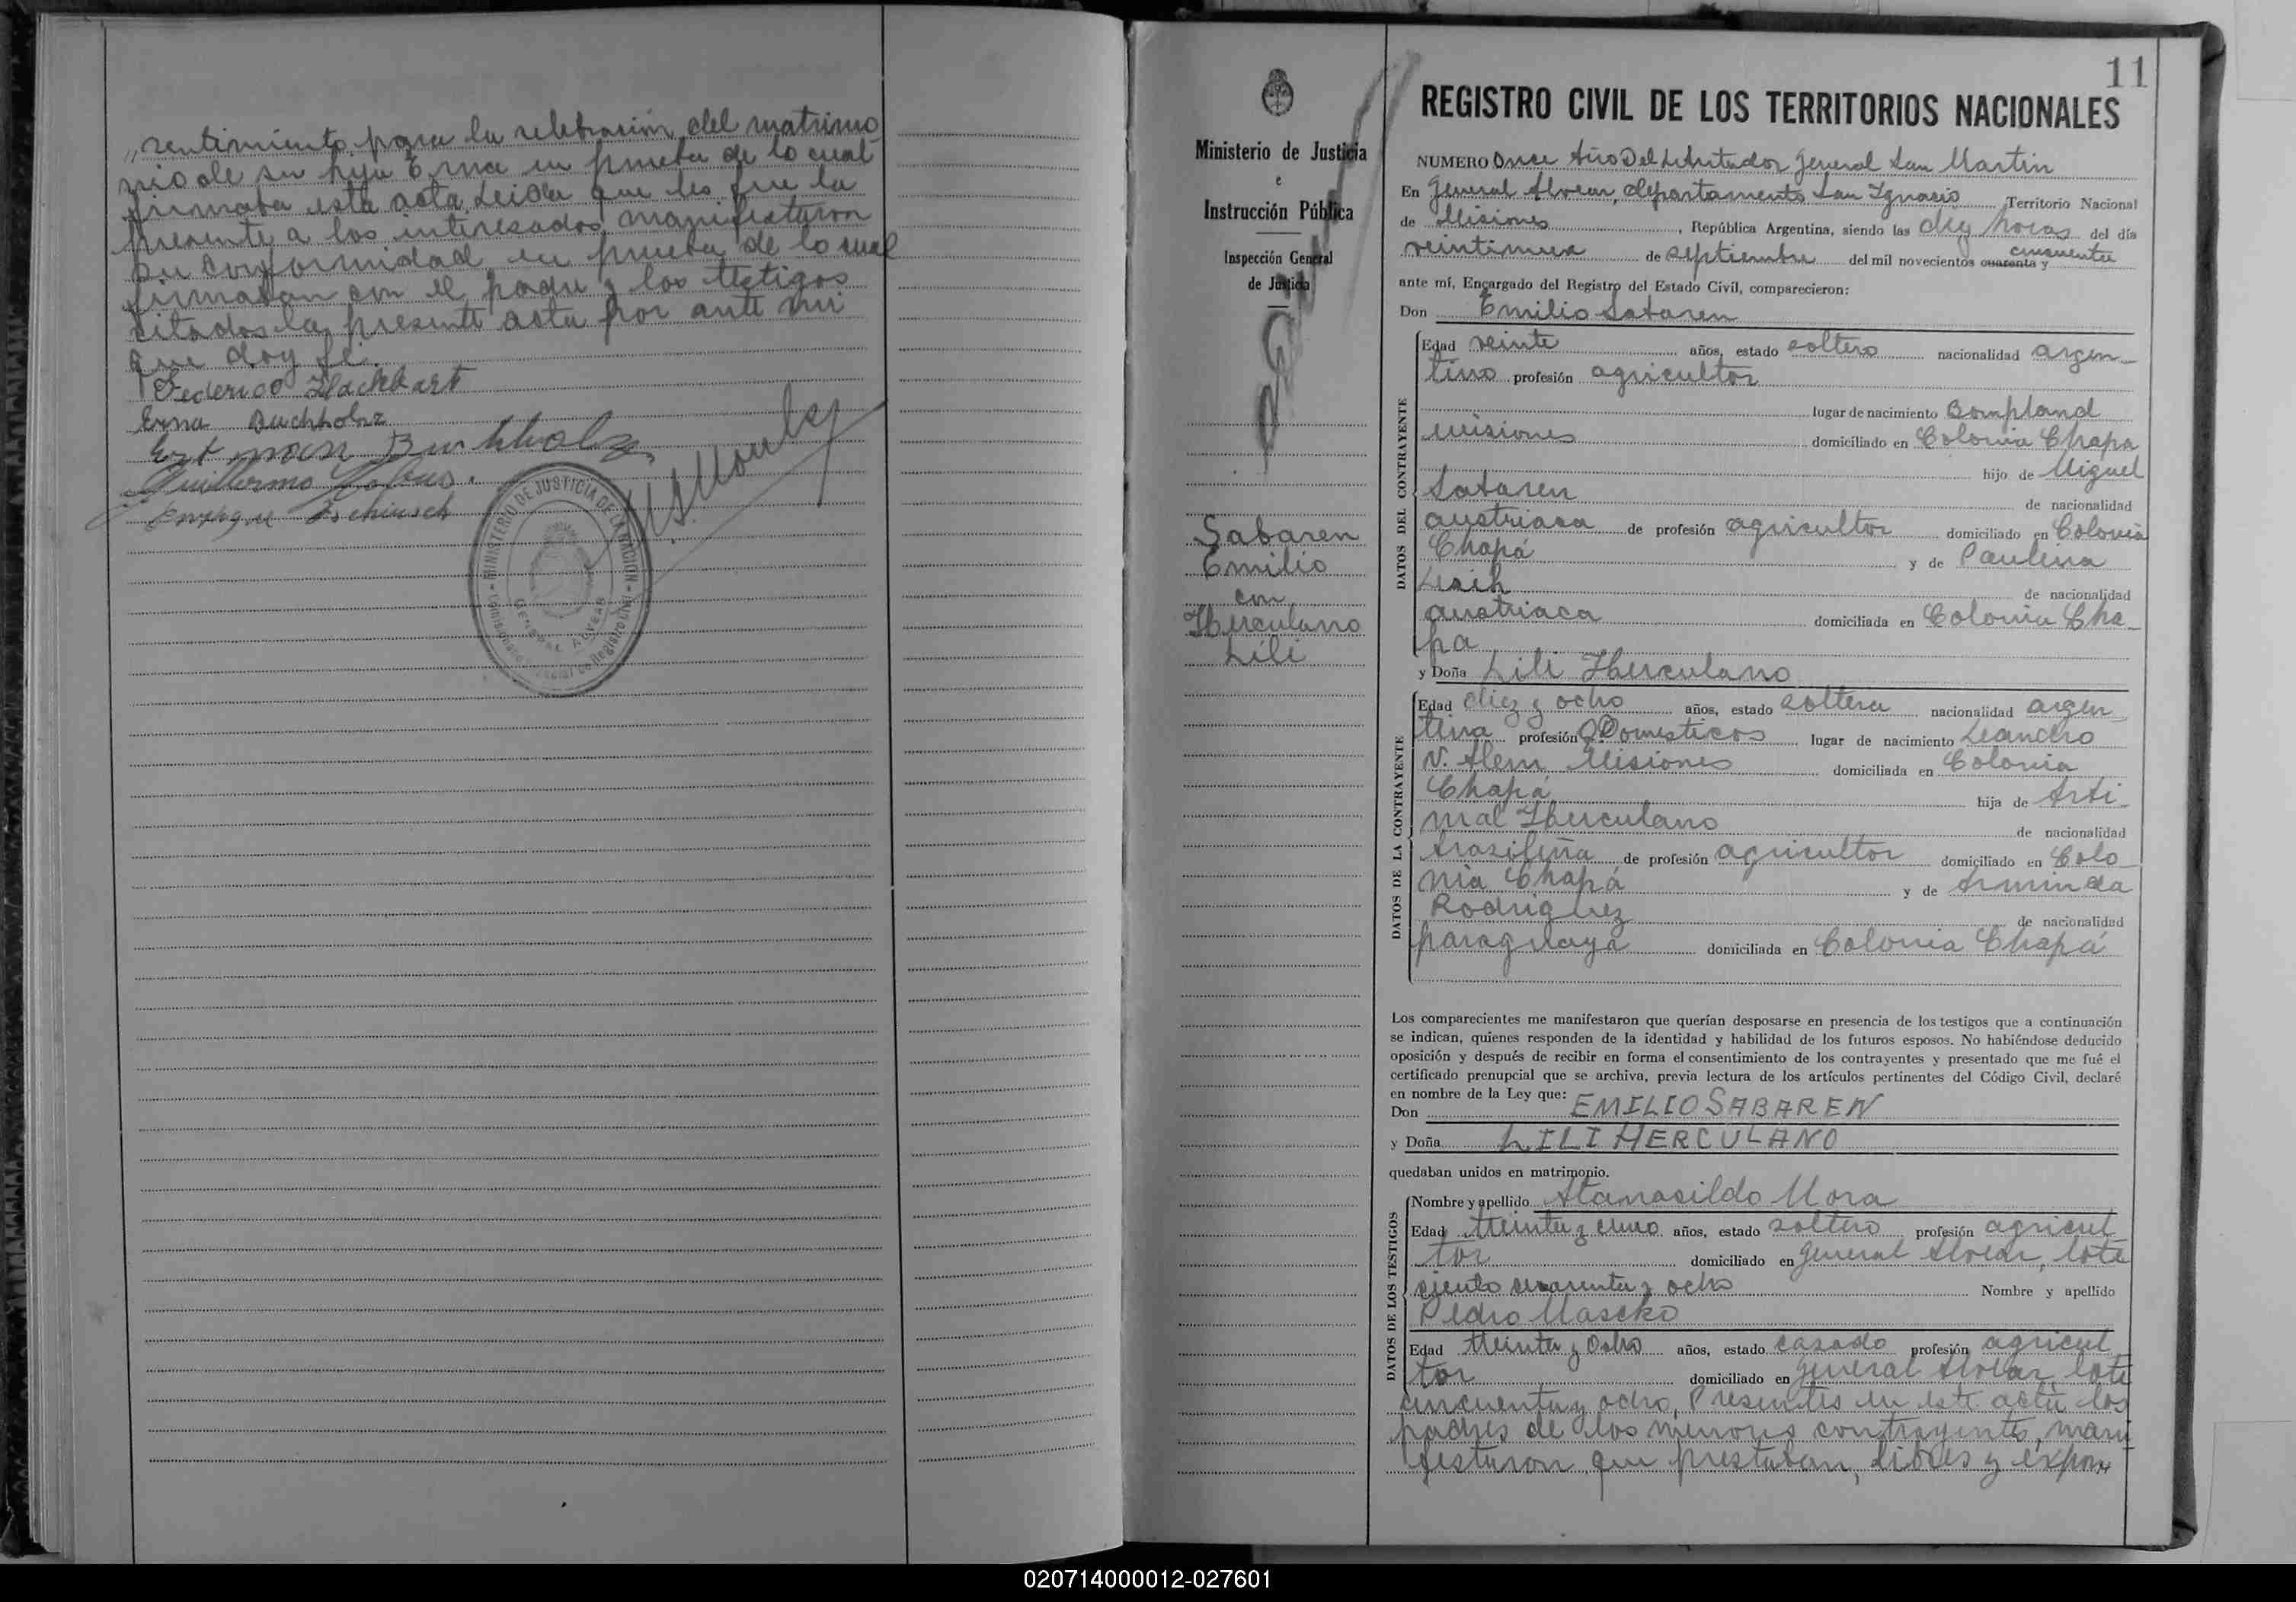 sentimiento para la celebración del matrimo
nio de su hija Erna en prueba de lo cual
firmaba esta acta Leida que les fue la
presente a los interesados manifestaron
su conformidad en prueba de lo cual
firmaban con el padre y los testigos
citados la presente acta por ante mi
que doy fe.
Federico Hackbart
Erna Buchholz
Buchholz
Guillermo
MINISTERIO DE JUSTICIA DE LA NACION
GENERAL ALVEAR
11
Ministerio de Justicia
e
Instrucción Pública
Inspección General
de Justicia
Sabaren
Emilio
con
Herculano
Lili
REGISTRO CIVIL DE LOS TERRITORIOS NACIONALES
NUMERO Once Año Del Libertador General San Martin
En General Alvear, departamento San Ignacio Territorio Nacional
de Misiones, República Argentina, siendo las diez horas del día
veintinueve de septiembre del mil novecientos cuarenta y cincuenta
ante mí, Encargado del Registro del Estado Civil, comparecieron:
Don Emilio Sabaren
DATOS DEL CONTRAYENTE
Edad veinte años, estado soltero nacionalidad argen
tino profesión agricultor
lugar de nacimiento Bompland
Misiones domiciliado en Colonia Chapa
hijo de Miguel
Sabaren de nacionalidad
austriaca de profesión agricultor domiciliado en Colonia
Chapá y de Paulina
de nacionalidad
austriaca domiciliada en Colonia Cha
pa
y Doña Lili Herculano
DATOS DE LA CONTRAYENTE
Edad diez y ocho años, estado soltera nacionalidad argen
tina profesión Q. Domesticos lugar de nacimiento Leandro
N. Alem Misiones domiciliada en Colonia
Chapá hija de Arti
mal Herculano de nacionalidad
brasileña de profesión agricultor domiciliado en Colo
nia Chapá y de Arminda
Rodriguez de nacionalidad
paraguaya domiciliada en Colonia Chapá
Los comparecientes me manifestaron que querían desposarse en presencia de los testigos que a continuación
se indican, quienes responden de la identidad y habilidad de los futuros esposos. No habiéndose deducido
oposición y después de recibir en forma el consentimiento de los contrayentes y presentado que me fué el
certificado prenupcial que se archiva, previa lectura de los artículos pertinentes del Código Civil, declaré
en nombre de la Ley que:
Don EMILIO SABAREN
y Doña LILI HERCULANO
quedaban unidos en matrimonio.
DATOS DE LOS TESTIGOS
Nombre y apellido Atanasildo Mora
Edad treinta y cinco años, estado soltero profesión agricul
tor domiciliado en General Alvear, lote
ciento cuarenta y ocho Nombre y apellido
Pedro Mascko
Edad treinta y Ocho años, estado casado profesión agricul
tor domiciliado en General Alvear, lote
cincuenta y ocho, Presentes en este acto los
padres de los menores contrayentes, mani
festaron que prestaban, libres y expon
020714000012-027601